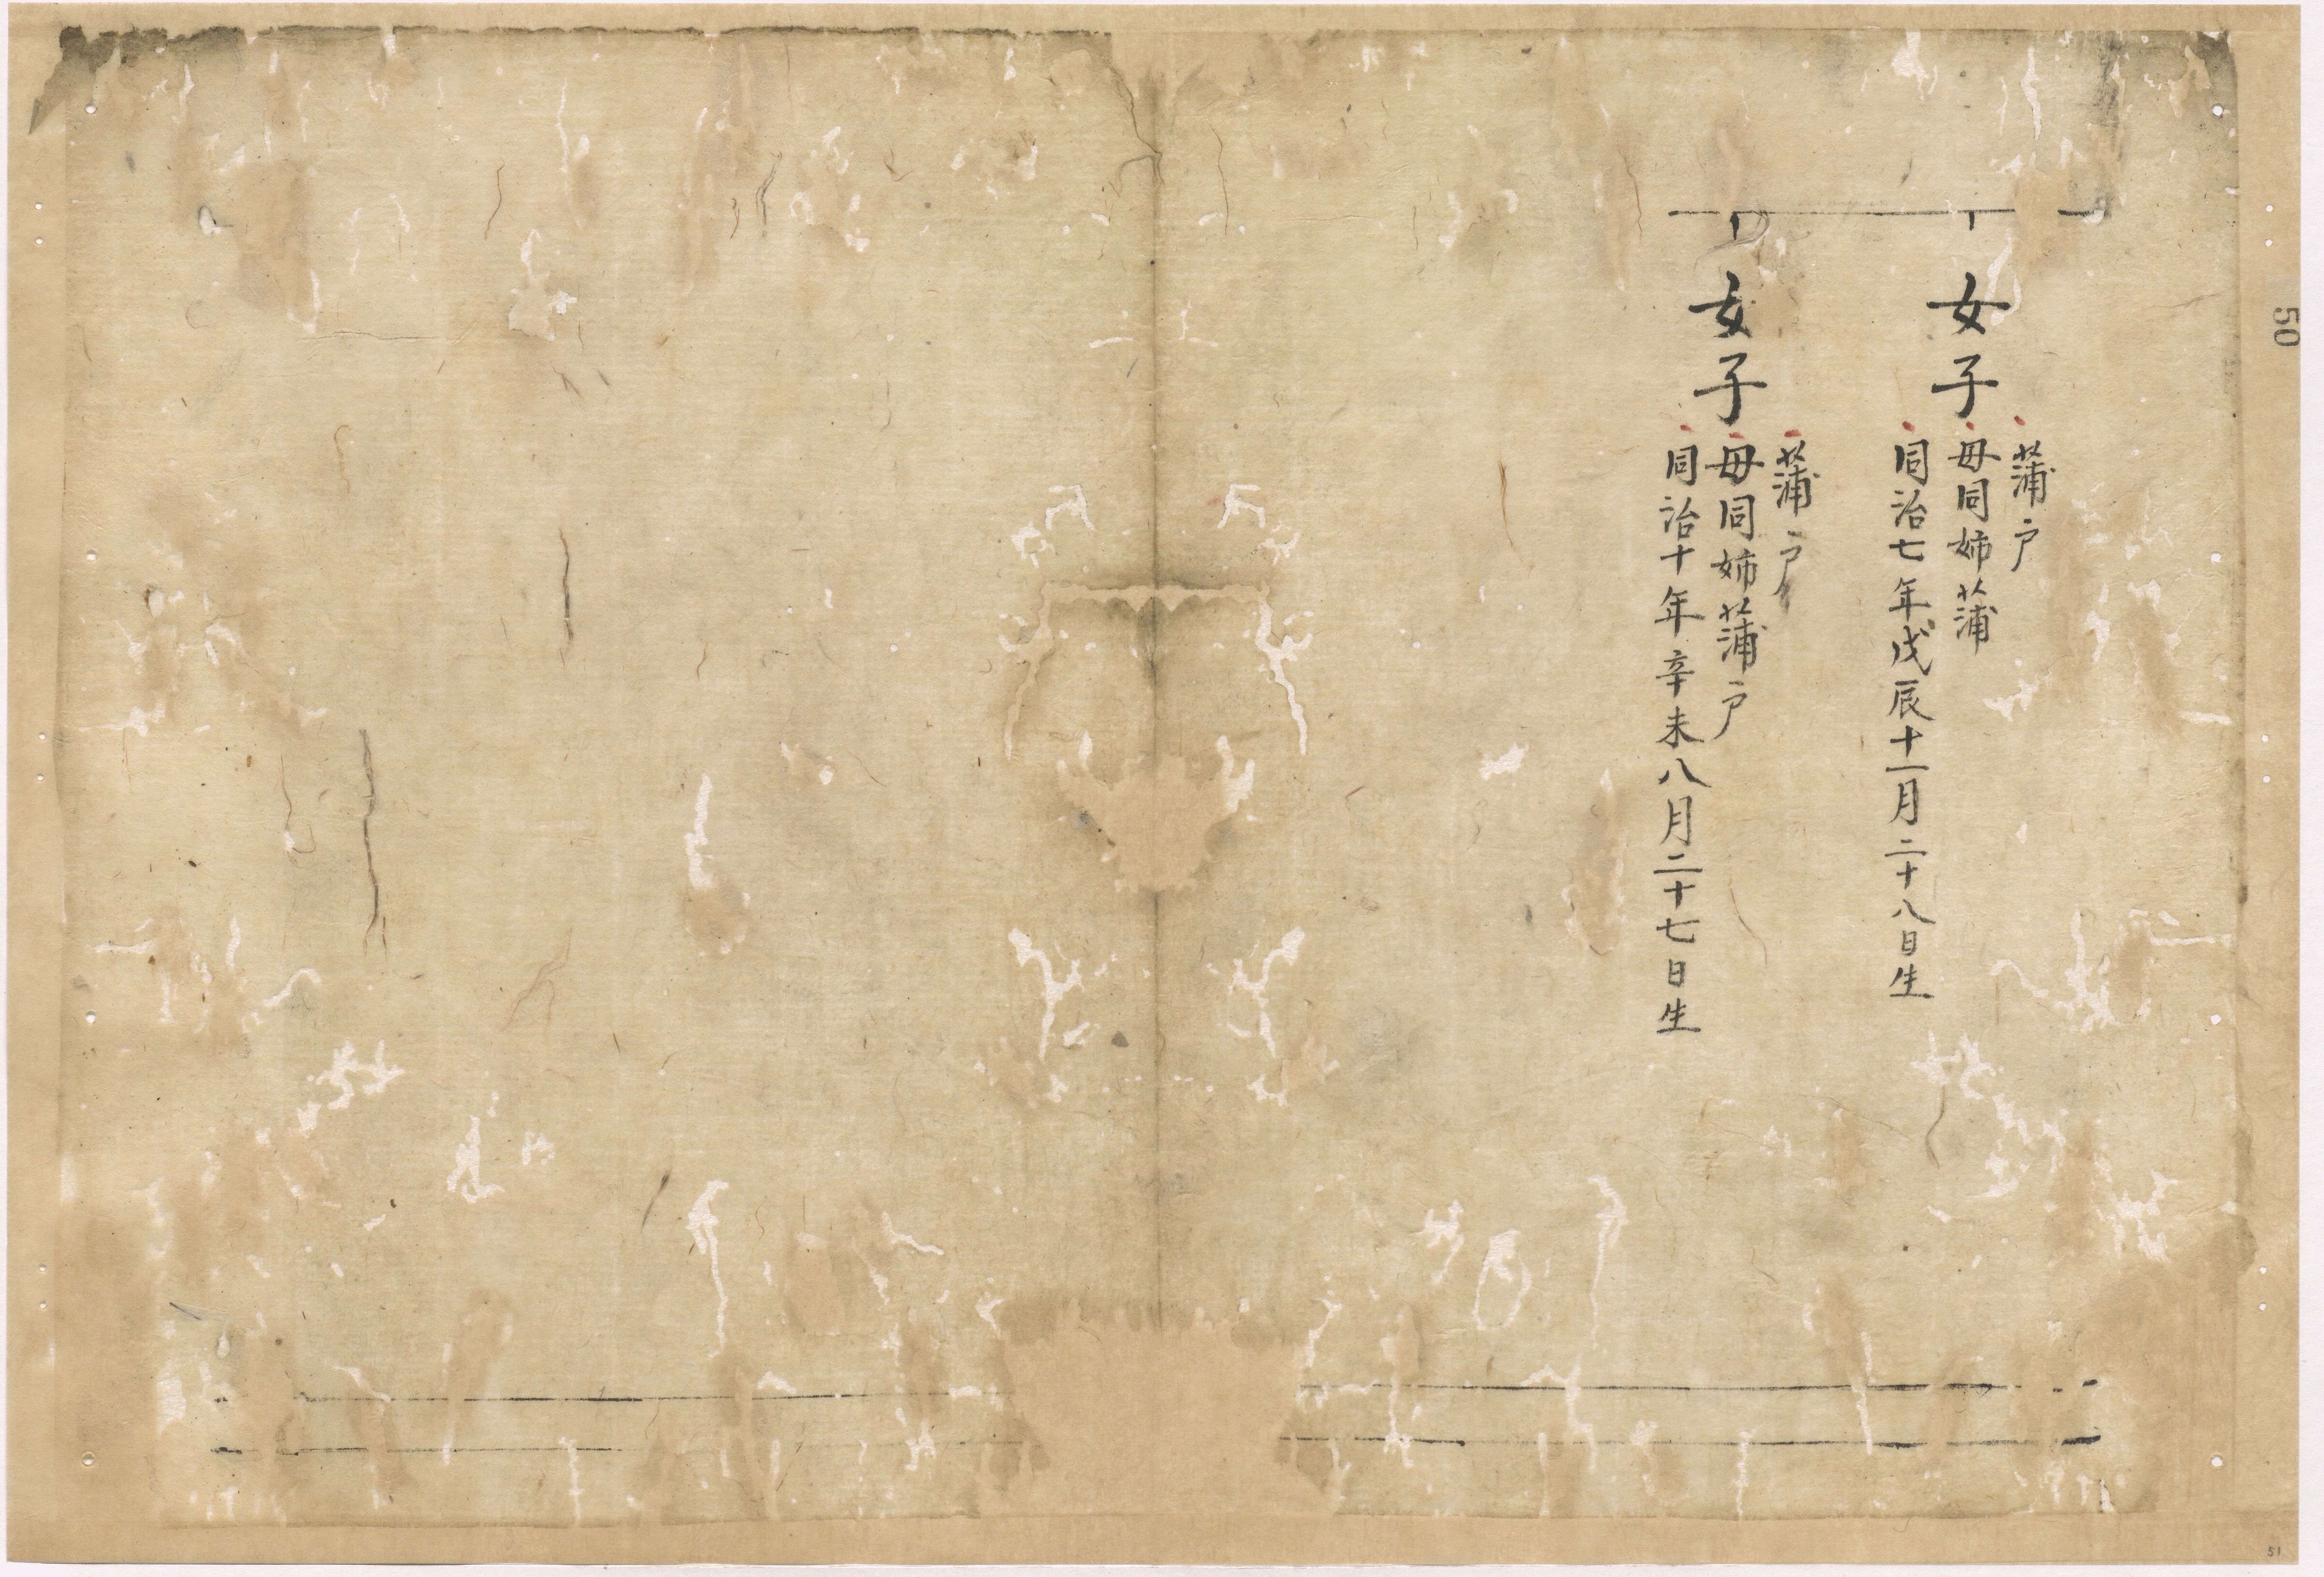 女子
蒲戸
母同姉蒲
同治七年戊辰十一月二十八日生
女子
蒲戸
母同姉蒲戸
同治十年辛未八月二十七日生
50
51